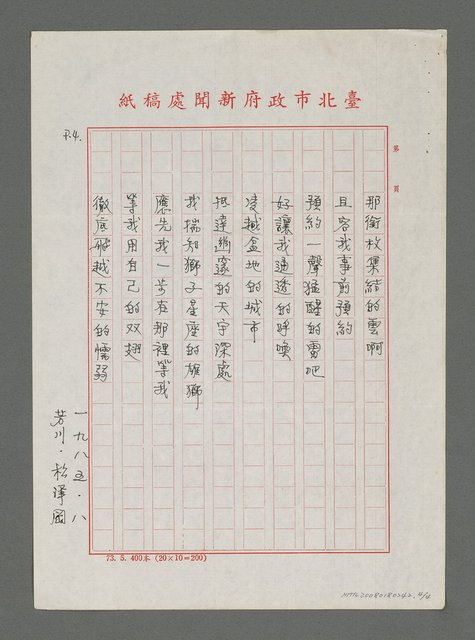 臺北市政府新聞處稿紙
P.4.
第 頁
那銜枚集結的雲啊
且容我事前預約
預約一聲猛醒的雷吧
好讓我通透的呼喚
凌越盆地的城市
抵達邈寥的天宇深處
我揣知獅子星座的雄獅
應先我一步在那裡等我
等我用自己的双翅
徹底飛越不安的懦弱
一九八五.八
芳川.松澤園
73. 5. 400本 (20×10=200)
NMTL20080180242, 4/4